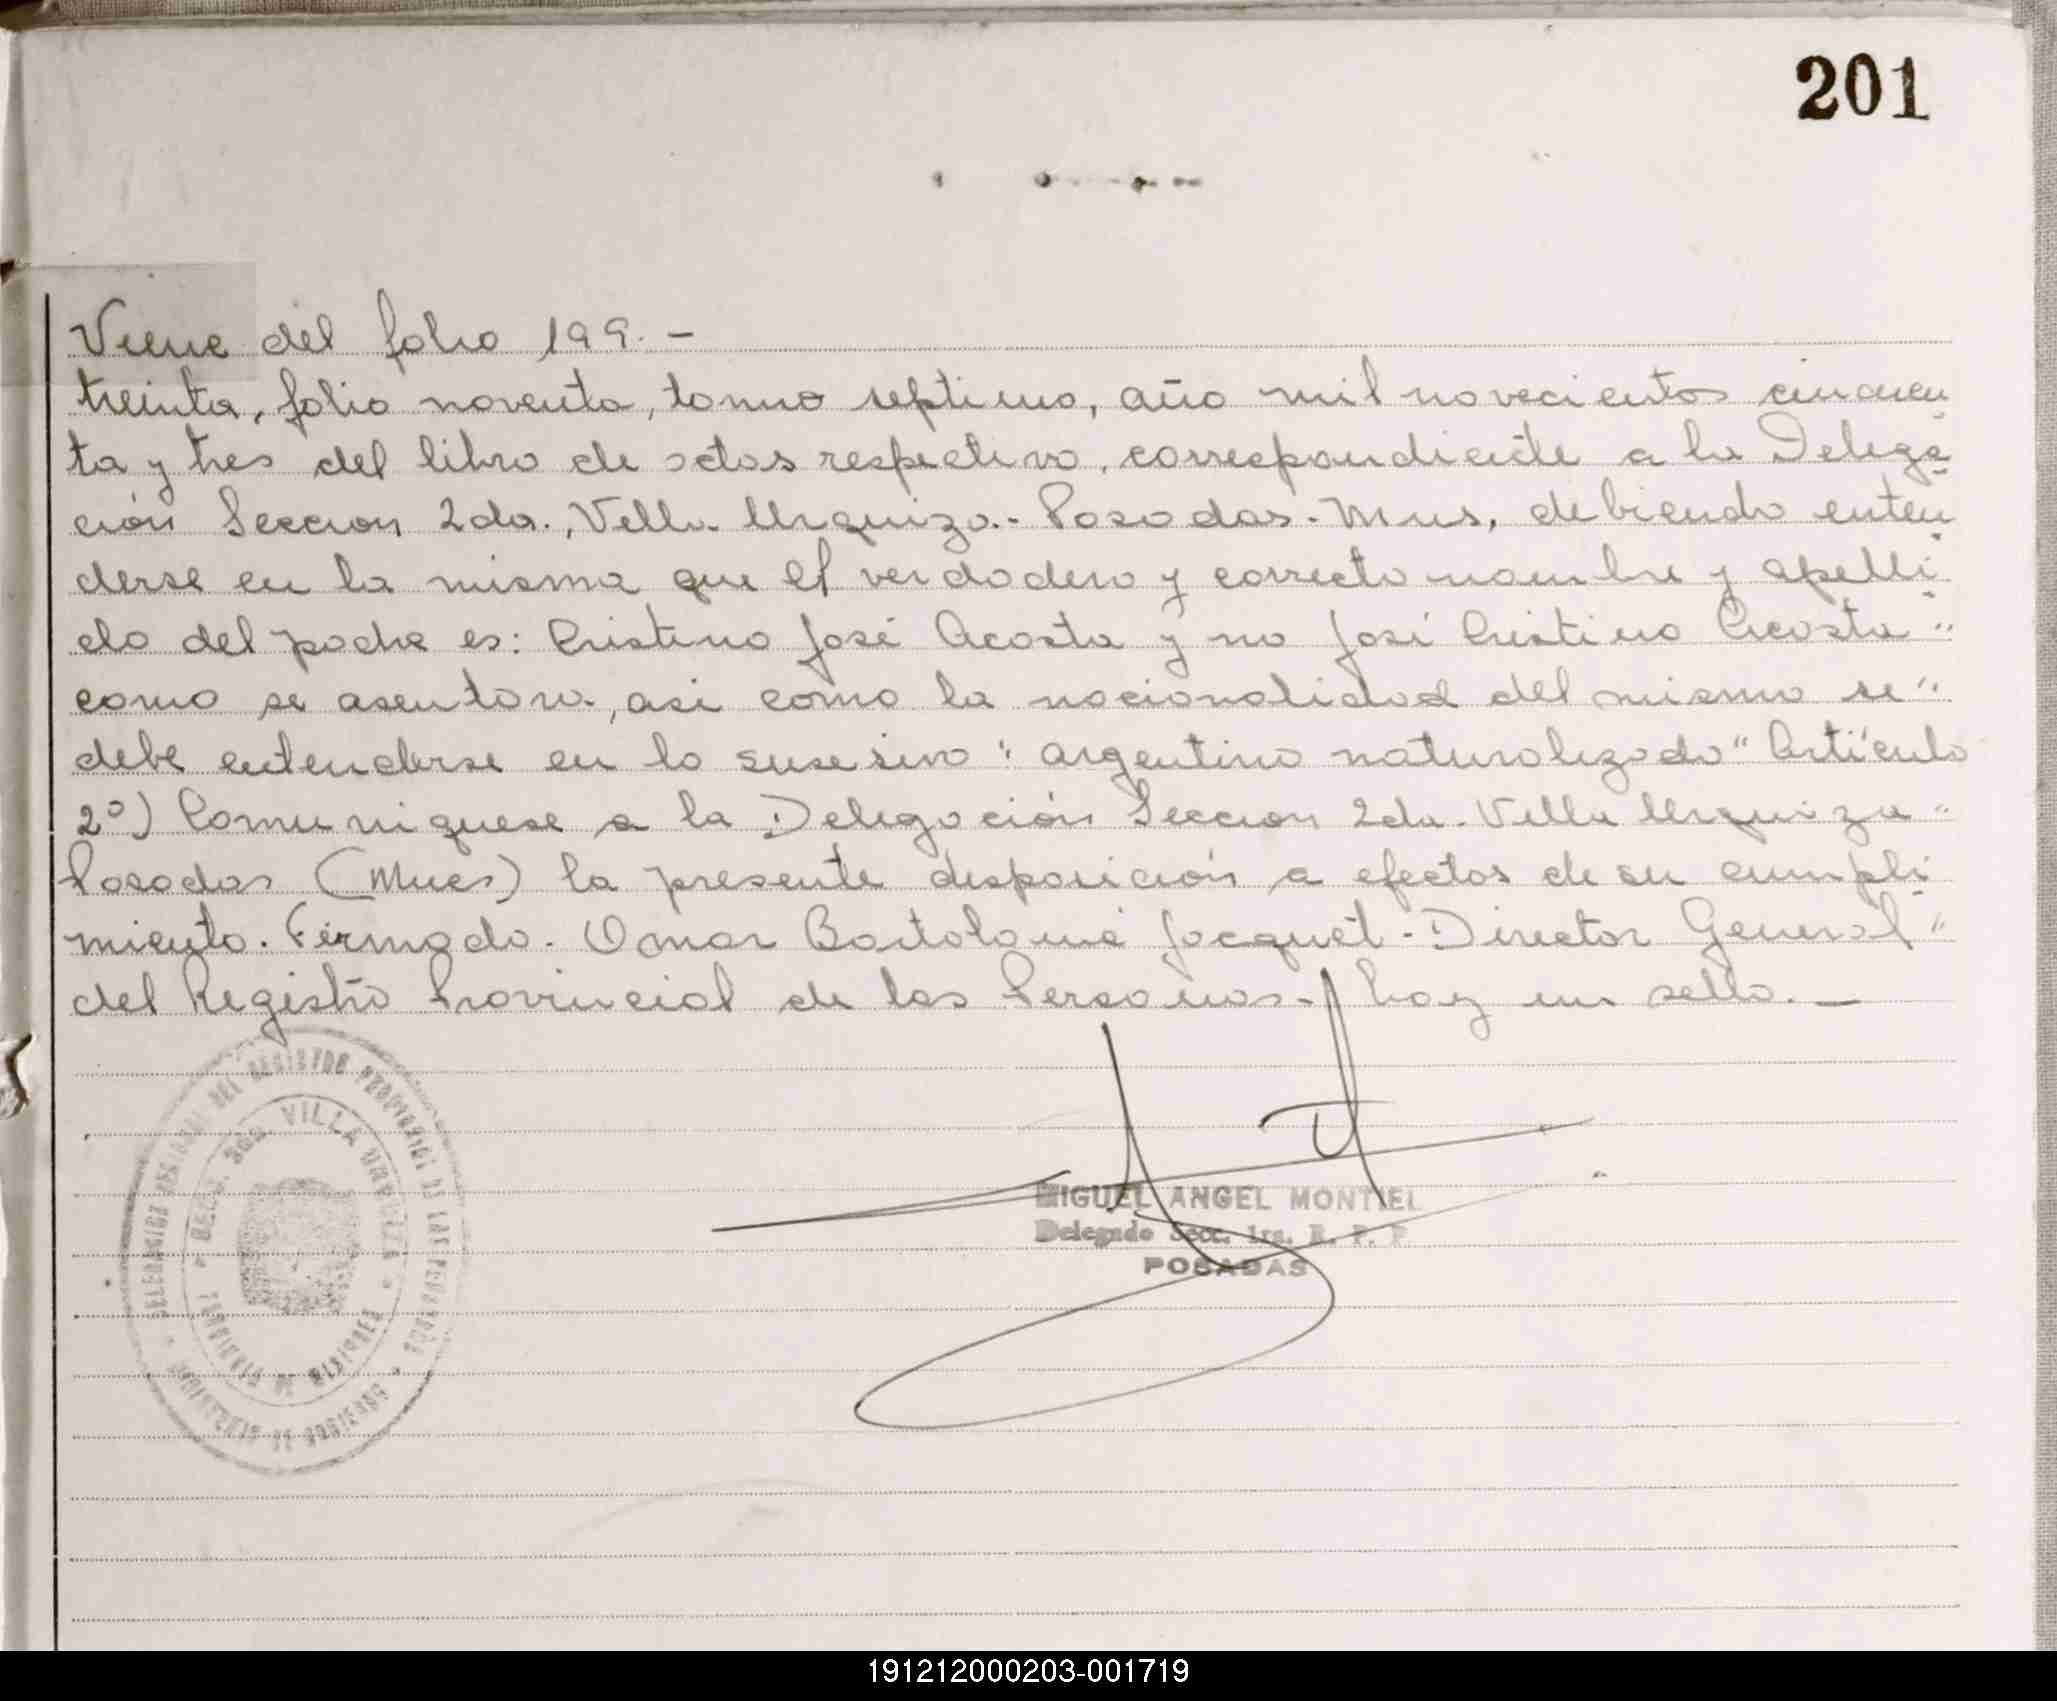 201
Viene del folio 199.-
treinta, folio noventa, tomo septimo, año mil novecientos cincuen
ta y tres del libro de actas respectivo, correspondiente a la Delega
ción Seccion 2da., Villa Urquiza.- Posadas - Mnes, debiendo enten
derse en la misma que el verdadero y correcto nombre y apelli
do del padre es: Cristino José Acosta y no José Cristino Acosta"
como se asentara, asi como la nacionalidad del mismo se"
debe entenderse en lo susesivo "argentino naturalizado" Artículo
2º) Comuniquese a la Delegación Seccion 2da. Villa Urquiza"
Posadas (Mnes) la presente disposición a efectos de su cumpli
miento. Firmado. Omar Bartolomé Jacquét - Director General"
del Registro Provincial de las Personas - hay un sello. —
DEL REGISTRO PROVINCIAL DE LAS PERSONAS
VILLA URQUIZA
MIGUEL ANGEL MONTIEL
Delegado Secc. 1ra. R. P. P
POSADAS
191212000203-001719